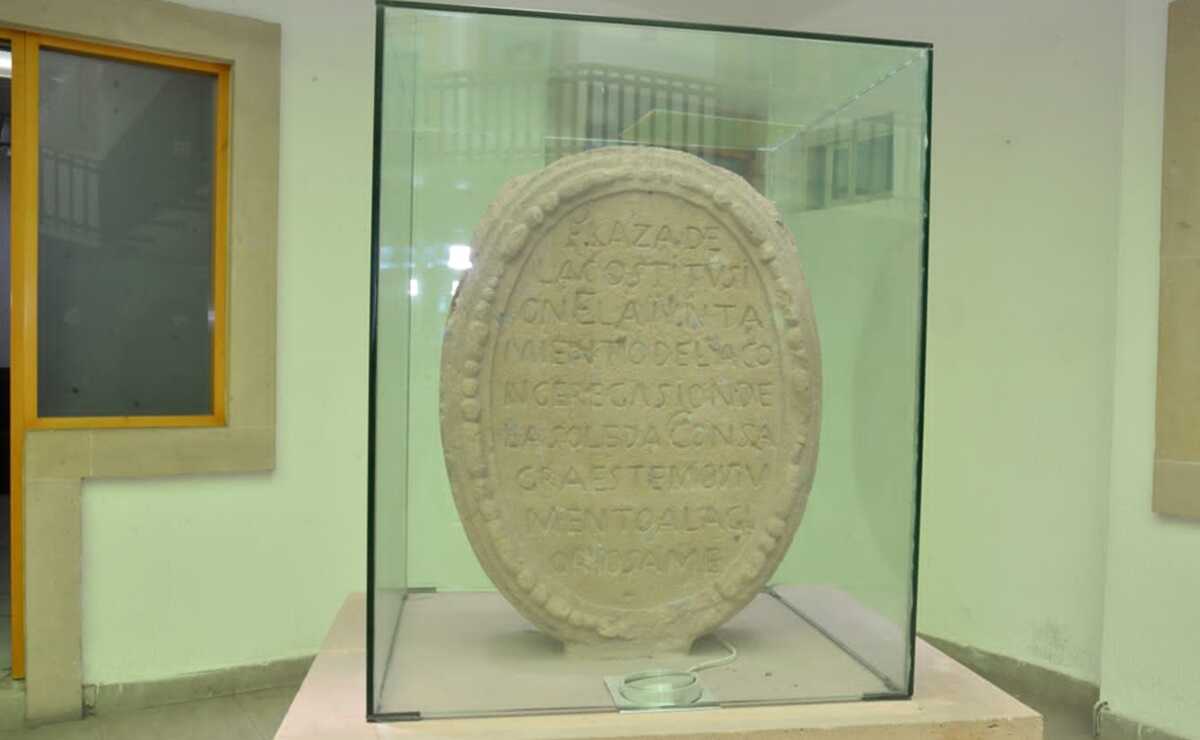 PLAZA DE
LA COSTITVSI
ON EL AIVNTA
MIENTO DE LA CO
NGEREGASION DE
LA SOLEDA CONSA
GRA ESTE MOSTV
MENTO A LA GL
ORIOSA ME